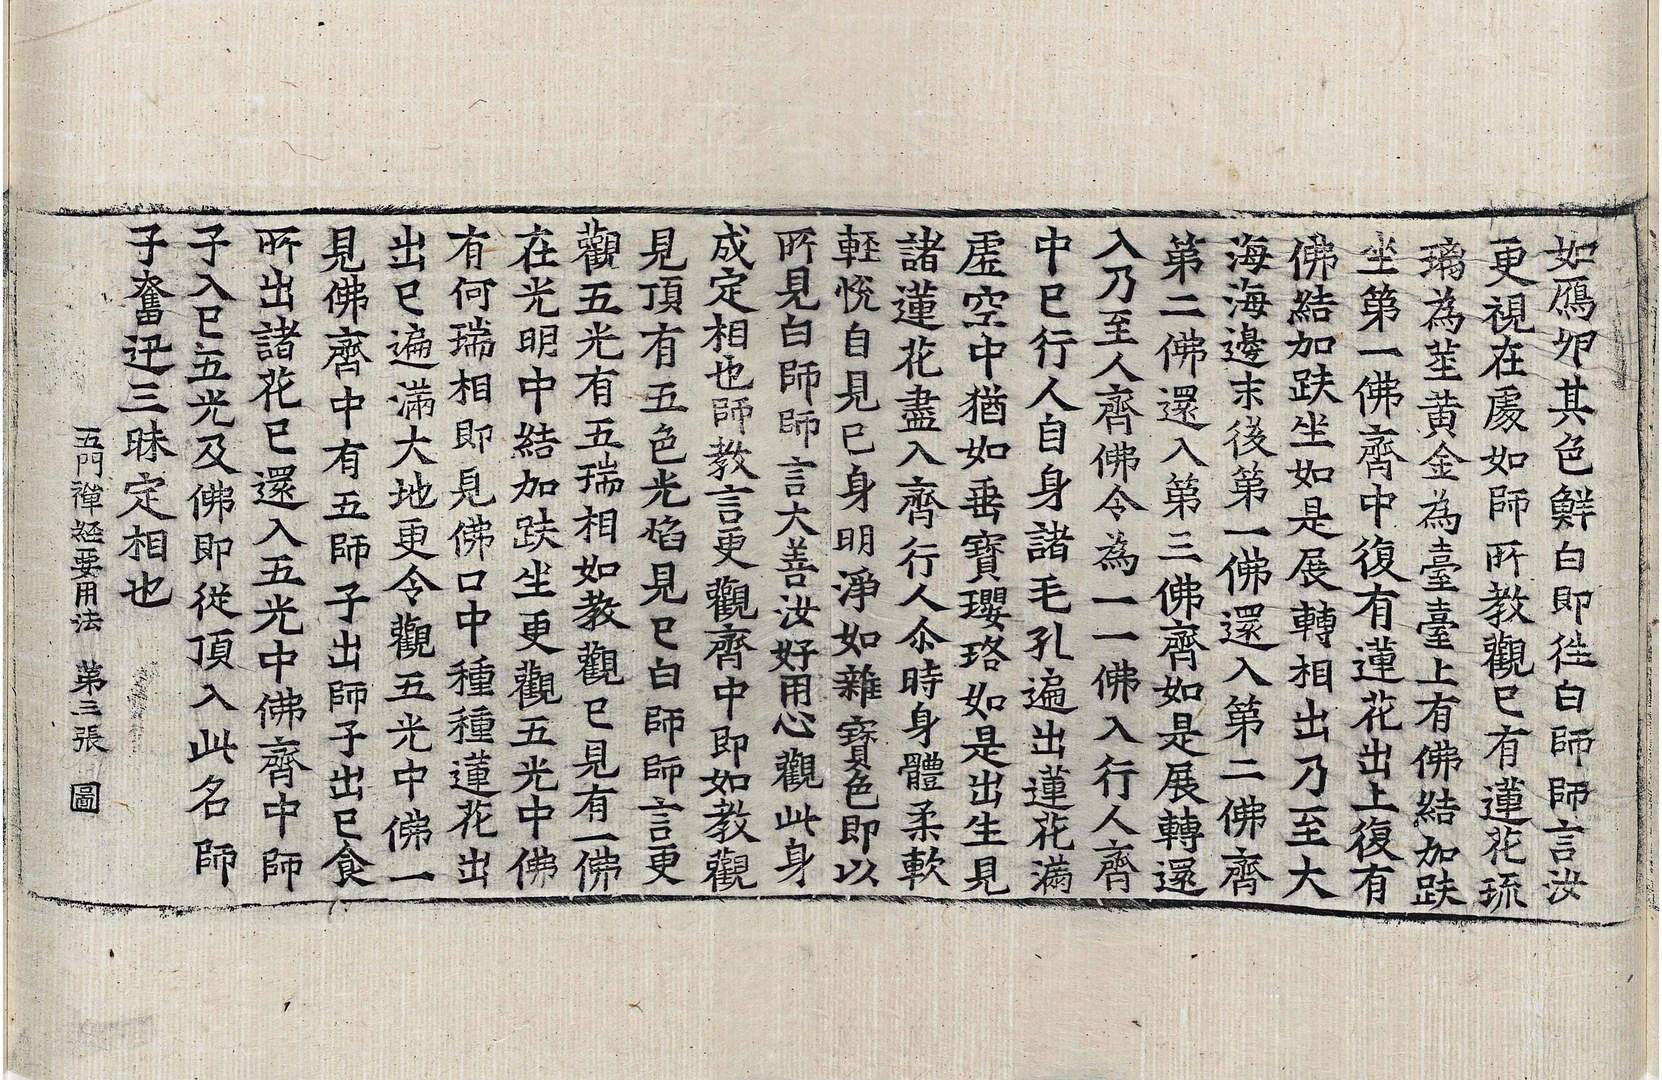 如鴈卵其色鮮白即往白師師言汝
更視在處如師所教觀已有蓮花琉
璃為莖黃金為臺臺上有佛結加趺
坐第一佛齊中復有蓮花出上復有
佛結加趺坐如是展轉相出乃至大
海海邊末後第一佛還入第二佛齊
第二佛還入第三佛齊如是展轉還
入乃至人齊佛令為一一佛入行人齊
中已行人自身諸毛孔遍出蓮花滿
虛空中猶如垂寶瓔珞如是出生見
諸蓮花盡入齊行人尒時身體柔軟
輕悅自見已身明淨如雜寶色即以
所見白師師言大善汝好用心觀此身
成定相也師教言更觀齊中即如教觀
見頂有五色光焰見已白師師言更
觀五光有五瑞相如教觀已見有一佛
在光明中結加趺坐更觀五光中佛
有何瑞相即見佛口中種種蓮花出
出已遍滿大地更令觀五光中佛一
見佛齊中有五師子出師子出已食
所出諸花已還入五光中佛齊中師
子入已五光及佛即從頂入此名師
子奮迅三昧定相也
五門禪經要用法 第三張 圖